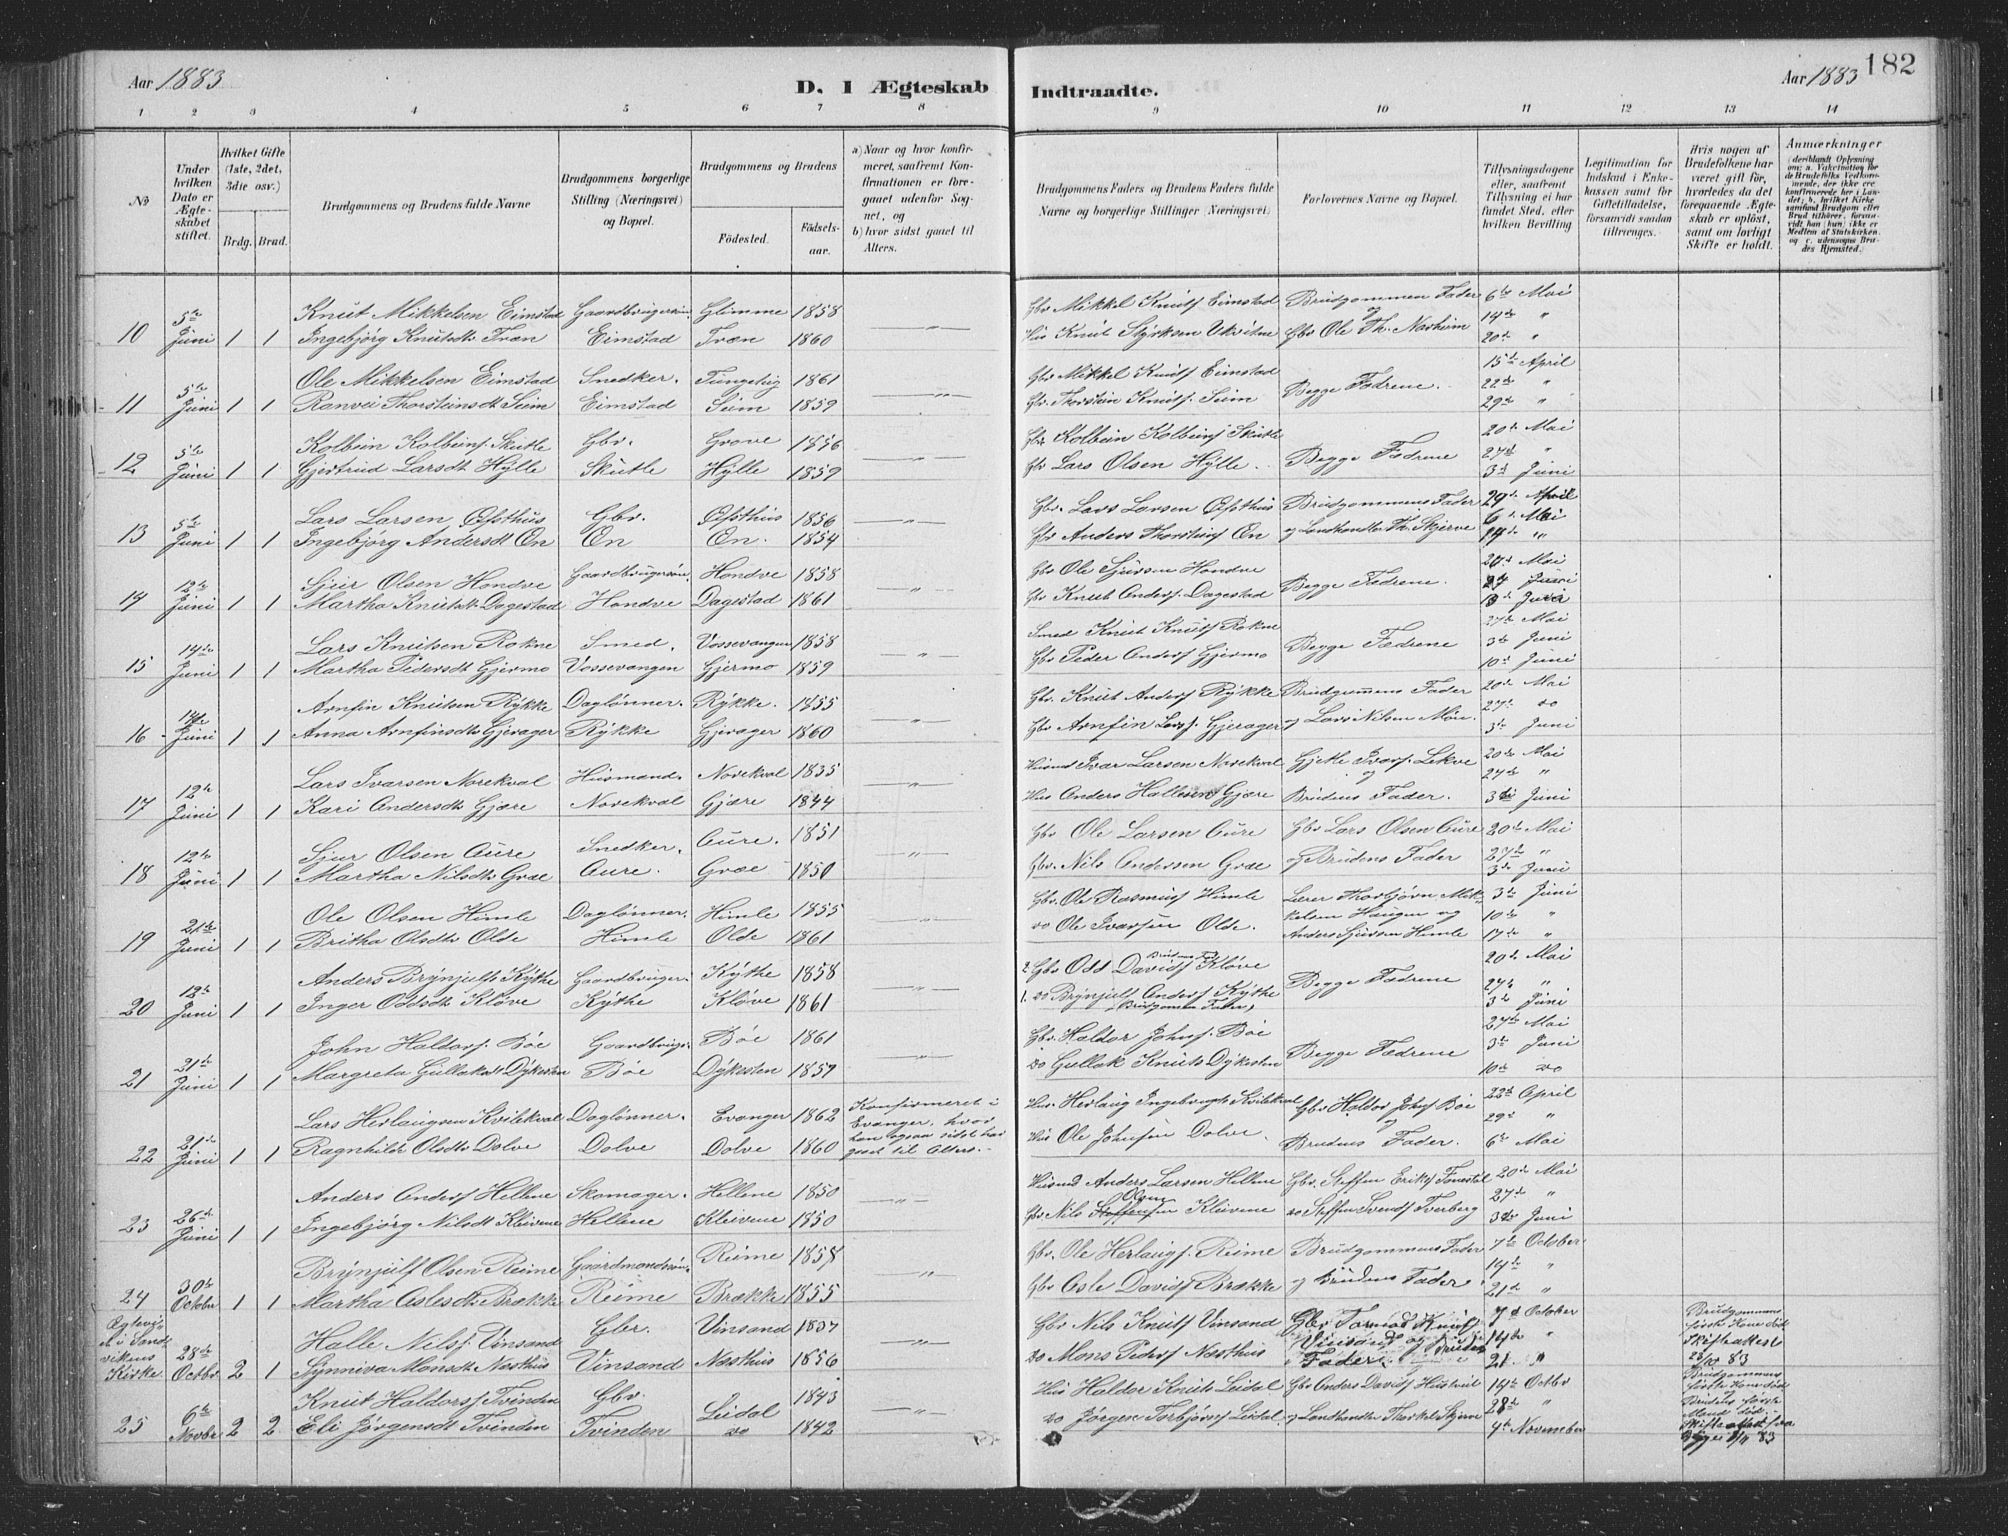 Aar 1883
D. I Ægteskab
Indtraadte.
Aar 1883
182
1 2 3 4 5 6 7 8 9 10 11 12 13 14
No
Under hvilken Dato er Ægteskabet stiftet.
Hvilket Gifte (1ste, 2det, 3die osv.)
Brdg. Brud.
Brudgommens og Brudens fulde Navne
Brudgommens borgerlige Stilling (Næringsvei) og Bopæl.
Brudgommens og Brudens
Fødested.
Fødselsaar.
a) Naar og hvor konfirmeret, saafremt Konfirmationen er foregaaet udenfor Sognet, og
b) hvor sidst gaaet til Alters.
Brudgommens Faders og Brudens Faders fulde Navne og borgerlige Stillinger (Næringsvei)
Forlovernes Navne og Bopæl.
Tillysningsdagene eller, saafremt Tillysning ei har fundet Sted, efter hvilken Bevilling
Legitimation for Indskud i Enkekassen samt for Giftetilladelse, forsaavidt saadan tiltrænges.
Hvis nogen af Brudefolkene har været gift før, hvorledes da det foregaaende Ægteskab er opløst, samt om lovligt Skifte er holdt.
Anmærkninger
(deriblandt Oplysning om: a. Vakcination for de Brudefolks Vedkommende, der ikke ere konfirmerede her i Landet; b. hvilket Kirkesamfund Brudgom eller Brud tilhører, forsaavidt han (hun) ikke er Medlem af Statskirken, og c. udensogns Brudes Hjemsted.
10 5te Juni 1 1
Knut Mikkelsen Eimstad Gaardbrugersøn Glimme 1858
Ingebjørg Knutsdt Træn Eimstad Træn 1860
Gbr Mikkel Knuts Eimstad Brudgommens Fader 6te Mai
og 14de "
Hus Knut Styrksen Ukvitne Gbr Ole Th. Nasheim 20de "
11 5te Juni 1 1
Ole Mikkelsen Eimstad Snedker. 1861
Ranvei Thorsteinsdt Seim Eimstad Seim 1859
Gbr Mikkel Knuts Eimstad 15de April
Begge Fædrene. 22de "
Gbr. Thorstein Knuts. Seim 29de "
12 5te Juni 1 1
Kolbein Kolbeins. Skutle Gbr. Grove 1856
Gjertrud Larsdt Hylle Skutle Hylle 1859
Gbr Kolbein Kolbeins Skutle 20de Mai
Begge Fædrene 27de "
Gbr Lars Olsen Hylle. 3de Juni
13 5te Juni 1 1
Lars Larsen Øfsthus Gbr. Øfsthus 1856
Ingebjørg Andersdt Øn Øn Øn. 1854
Gbr. Lars Larsen Øfsthus Brudgommens Fader 29de April
6te Mai
Gbr Anders Thorsteins Øn og Landhandler Th. Skjerve 14de "
14 12te Juni 1 1
Sjur Olsen Hondve Gaardbrugersøn. Hondve 1858
Martha Knutsdt Dagestad Hondve Dagestad 1861
Gbr Ole Sjursen Hondve 20de Mai
Begge Fædrene. Juni
Gbr Knut Anders. Dagestad Juni
15 14de Juni 1 1
Lars Knutsen Rokne Smed. Vossevangen 1858
Martha Pedersdt Gjermo Vossevangen Gjermo 1859
Smed Knut Knuts Rokne 27de Mai
Begge Fædrene 3de Juni
Gbr Peder Anders Gjermo 10de Juni
16 Juni 1 1
Arnfin Knutsen Rykke Daglønner. Rykke. 1855
Anna Arnfinsdt Gjerager Rykke Gjerager 1860
Gbr Knut Anders Rykke Brudgommens Fader 20de Mai
27de do
Gbr Arnfin Lars. Gjerager og Lars Nilsen Møn 3de Juni
17 12te Juni 1 1
Lars Ivarsen Norekval Husmand. Norekval 1835
Kari Andersdt Gjære Norekval Gjære 1844
Husmd Ivar Larsen Norekval Gjetle Ivars. Lekve 20de Mai
og 27de "
Hus Anders Hallesen Gjære Brudens Fader. 3de Juni
18 12te Juni 1 1
Sjur Olsen Aure Snedker. Aure. 1851
Martha Nilsdt Græ Aure. Græe 1850
Gbr Ole Larsen Aure Gbr Lars Olsen Aure 20de Mai
27de "
Gbr. Nils Andersen Græ og Brudens Fader 3de Juni
19 21de Juni 1 1
Ole Olsen Himle Daglønner. Himle 1855
Britha Olsdtr Olde Himle Olde 1861
Gbr. Ole Rasmus Himle Lærer Thorbjørn Mikkelsen Haugen og 3de Juni
10de "
do Ole Ivarsen Olde. Anders Sjursen Himle 17de "
20 12te Juni 1 1
Anders Brynjulfs Kythe Gaardbruger. Kythe 1858
Inger Oddsdt Kløve Kythe Kløve 1861
2. Gbr Odd Davids Kløve 20de Mai
Begge Fædrene 27de "
1. do Brynjulf Anders Kythe (Brudgommens Fader) 3de Juni
21 21de Juni 1 1
John Haldors. Bøe Gaardbrugs. Bøe 1861
Margreta Gullaksdt Dykesten Bøe Dykesten 1857
Gbr. Haldor Johns. Bøe 27de Mai
Begge Fædrene 3de Juni
do Gullak Knuts Dykesten 10de do
22 21de Juni 1 1
Lars Herlaugsen Kvitekval Daglønner. Evanger 1862 Konfirmeret i Evanger, hvor han ogsaa sidst har gaaet til Alters.
Ragnhilde Olsdtr Dolve Dolve Dolve 1860
Hus. Herlaug Ingebrigts Kvitekval Gbr Haldor Johns Bøe 22de April
og 29de "
Hus Ole Johnsen Dolve. Brudens Fader. 6te Mai
23 26de Juni 1 1
Anders Anders Hellene Skomager. Hellene 1850
Ingebjørg Nilsdt Kleivene Hellene Kleivene 1850
Husmd Anders Larsen Hellene Gbr. Steffen Eriks 20de Mai
Olsen 27de "
Gbr Nils Kleivene do Steffen Svends Tverberg 3de Juni
24 30te October 1 1
Brynjulf Olsen Reime Gaardmandssøn. Reime 1857
Martha Aslesdt Brække Reime Brække 1855
Gbr. Ole Herlaugs. Reime Brudgommens Fader 7de October
14de "
Gbr Asle Davids Brække og Brudens Fader 21de "
Ægteviet i Sandvikens Kirke. 28de Octbr 2 1
Halle Nils. Vinsand Gbr. Vinsand 1837
Synniva Monsdt Næsthus Vinsand Næsthus 1856
Gbr Nils Knuts Vinsand Gbr Knuts 7de October
Vinsand og Brudens 14de "
do Mons Peders Næsthus Fader 21. "
Brudgommens første Kone død Skifteattest 23/10 83
25 6te Novbr 2 2
Knut Haldors. Tvinden Gbr. Leidal 1843
Eli Jørgensdt Tvinden Tvinden do 1842
Hus Haldor Knuts Leidal Gbr Anders Davids 14de Octbr
28de "
do Jørgen Torbjørns Leidal og Landhandler Thorkel Skjerve 4de November
Brudgommens første Kone død Brudens første Mand død. Skifteattest fra Begge 83